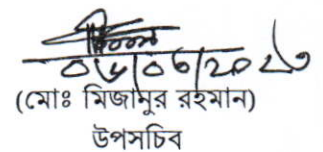 ০৬/০৩/২০২৩
(মোঃ মিজানুর রহমান)
উপসচিব